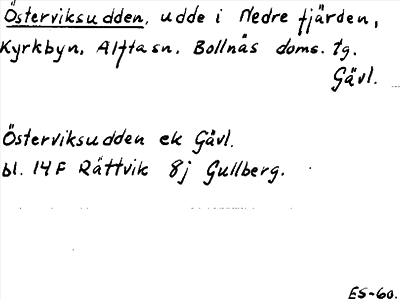 Österviksudden, udde i Nedre fjärden,
Kyrkbyn, Alfta sn. Bollnäs doms. tg.
Gävl.
Österviksudden ek Gävl.
bl. 14F Rättvik 8j Gullberg.
ES-60.